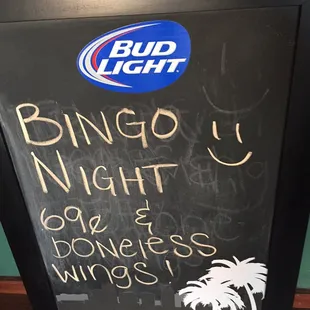 BUD
LIGHT
BINGO
NIGHT
69¢ &
BONELESS
WINGS!